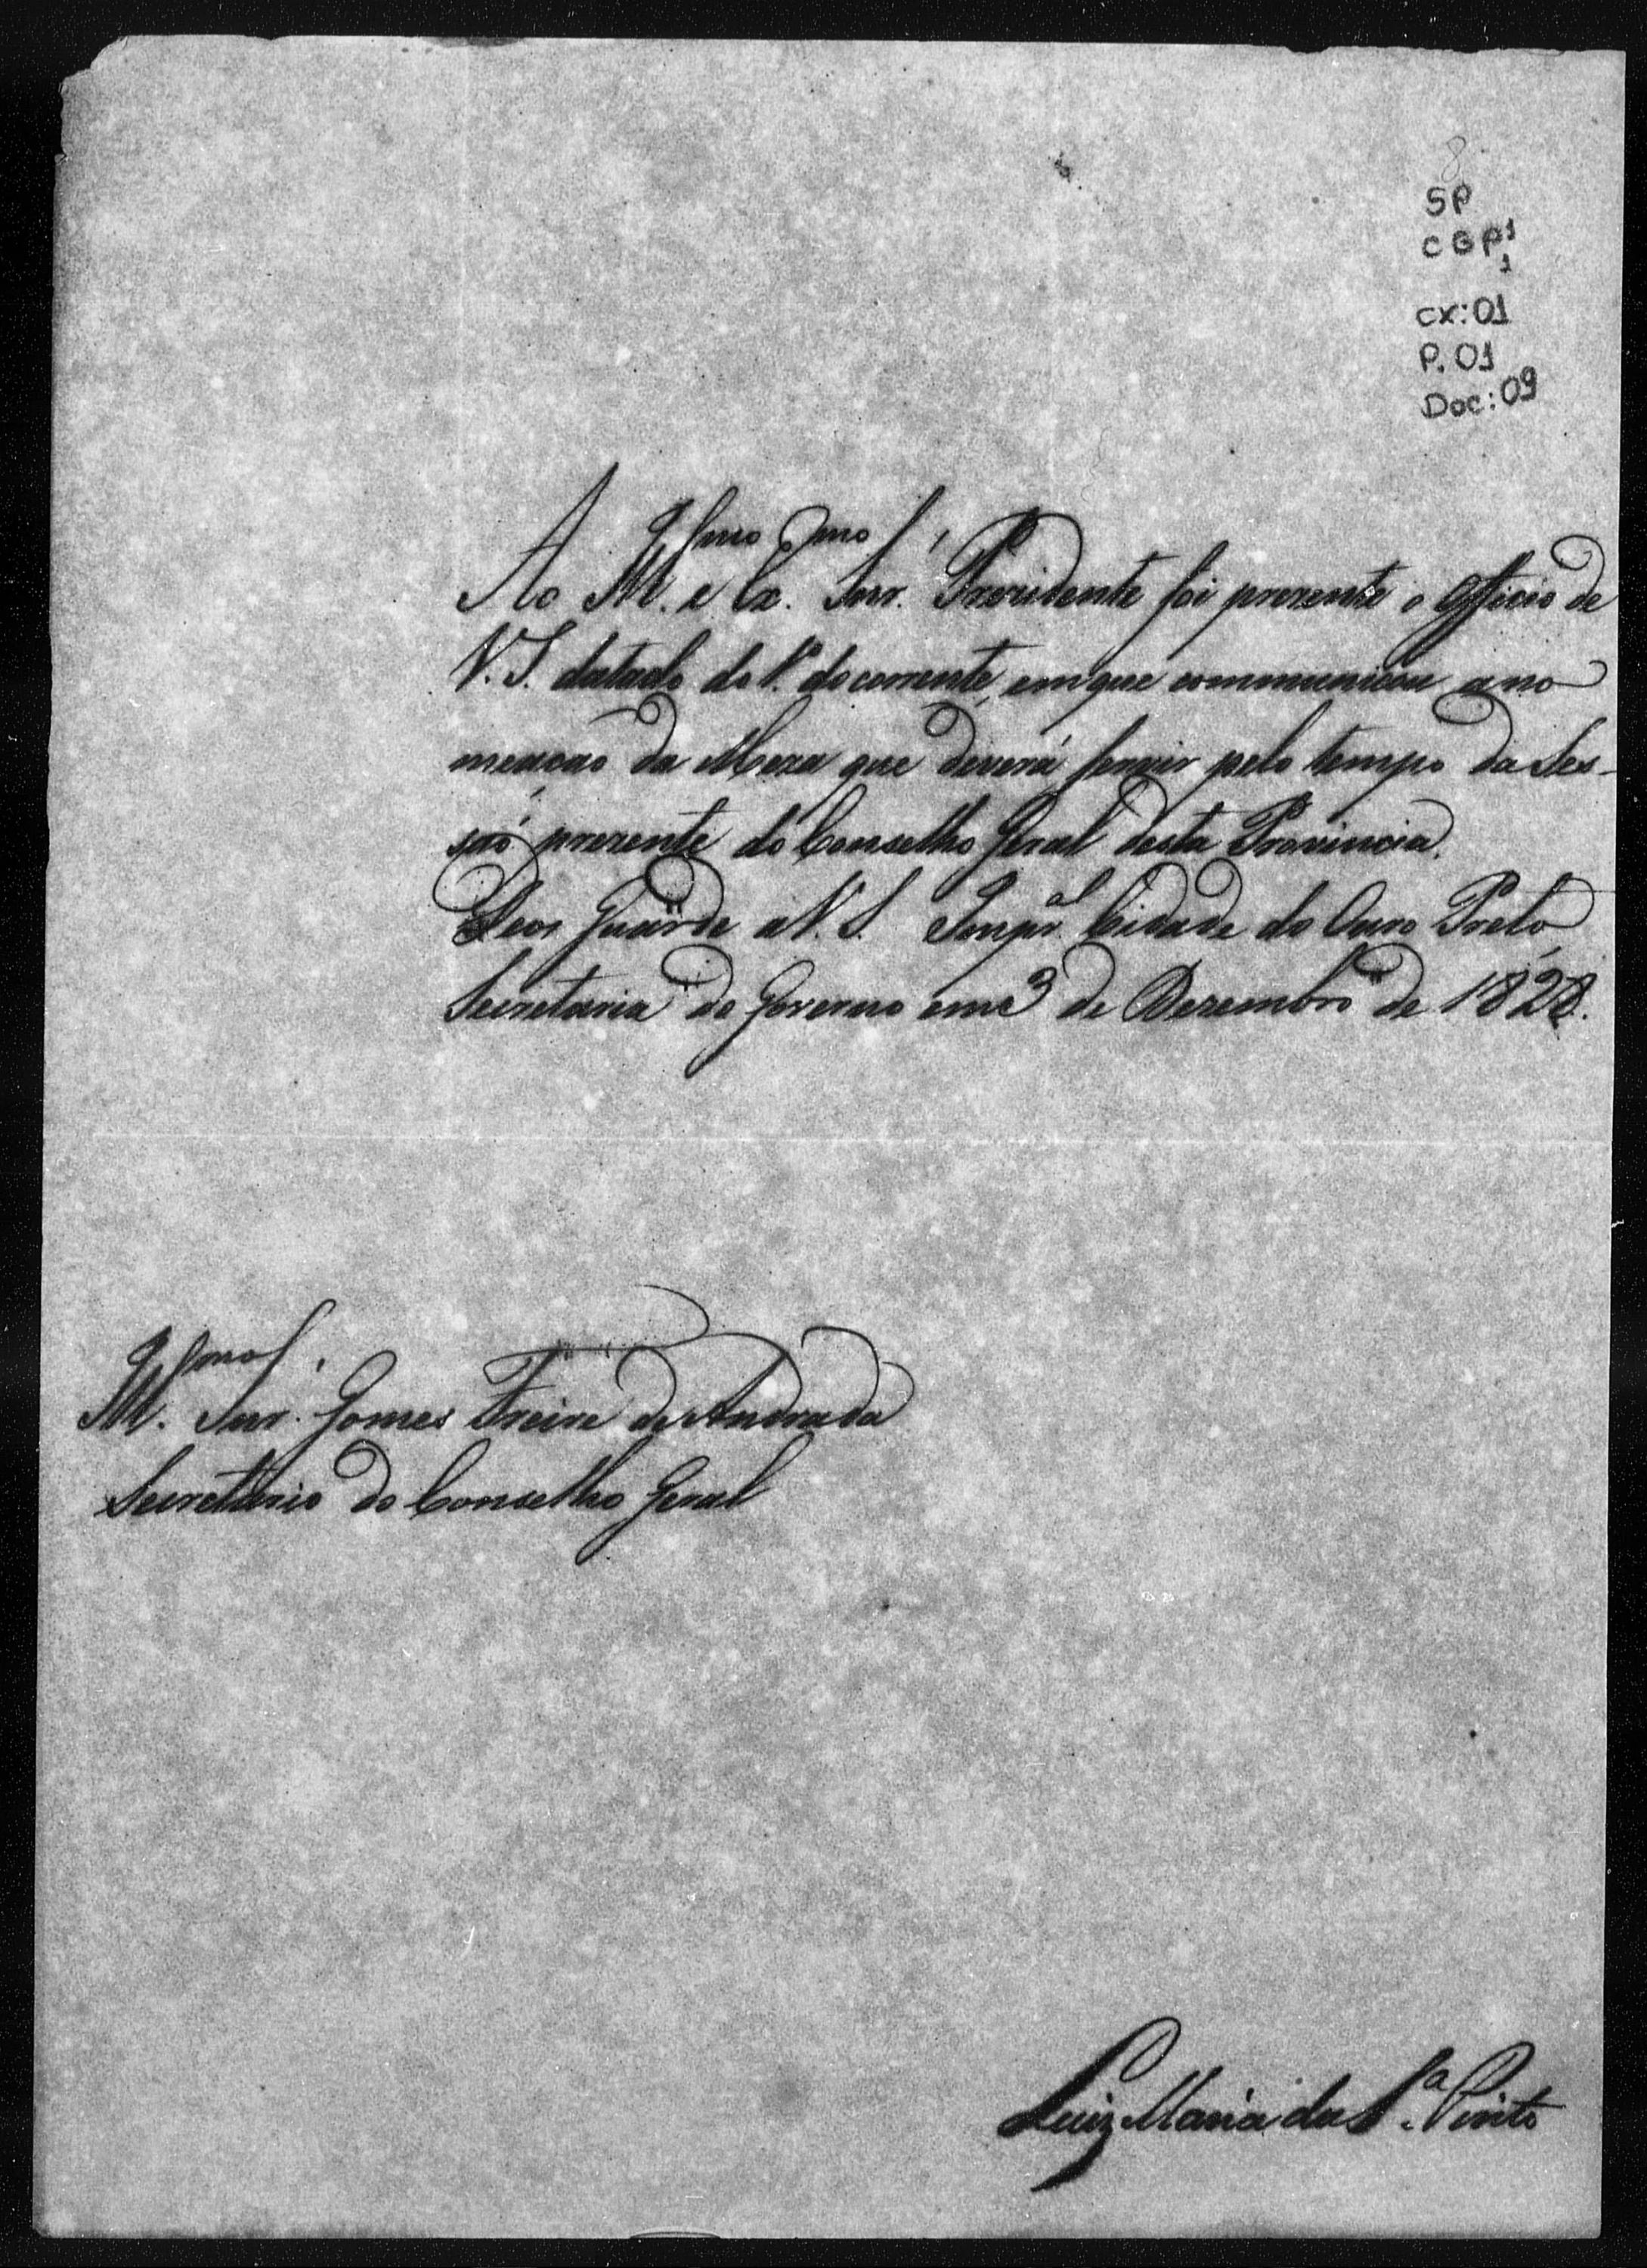 8
SP
CGP1
1
cx:01
P. 01
Doc:09
Ao Illmo. e Exmo. Snr. Prezidente foi prezente o Officio de
V. S. datado do 1.º do corrente, em que communicou a no
meação da Meza que deverá servir pelo tempo da Ses-
são prezente do Conselho Geral desta Provincia.
Deos Guarde a V. S. Impal. Cidade do Ouro Preto
Secretaria do Governo em 3 de Dezembro de 1828.
Illmo. Snr. Gomes Freire de Andrada
Secretario do Conselho Geral
Luiz Maria da Sa. Pinto